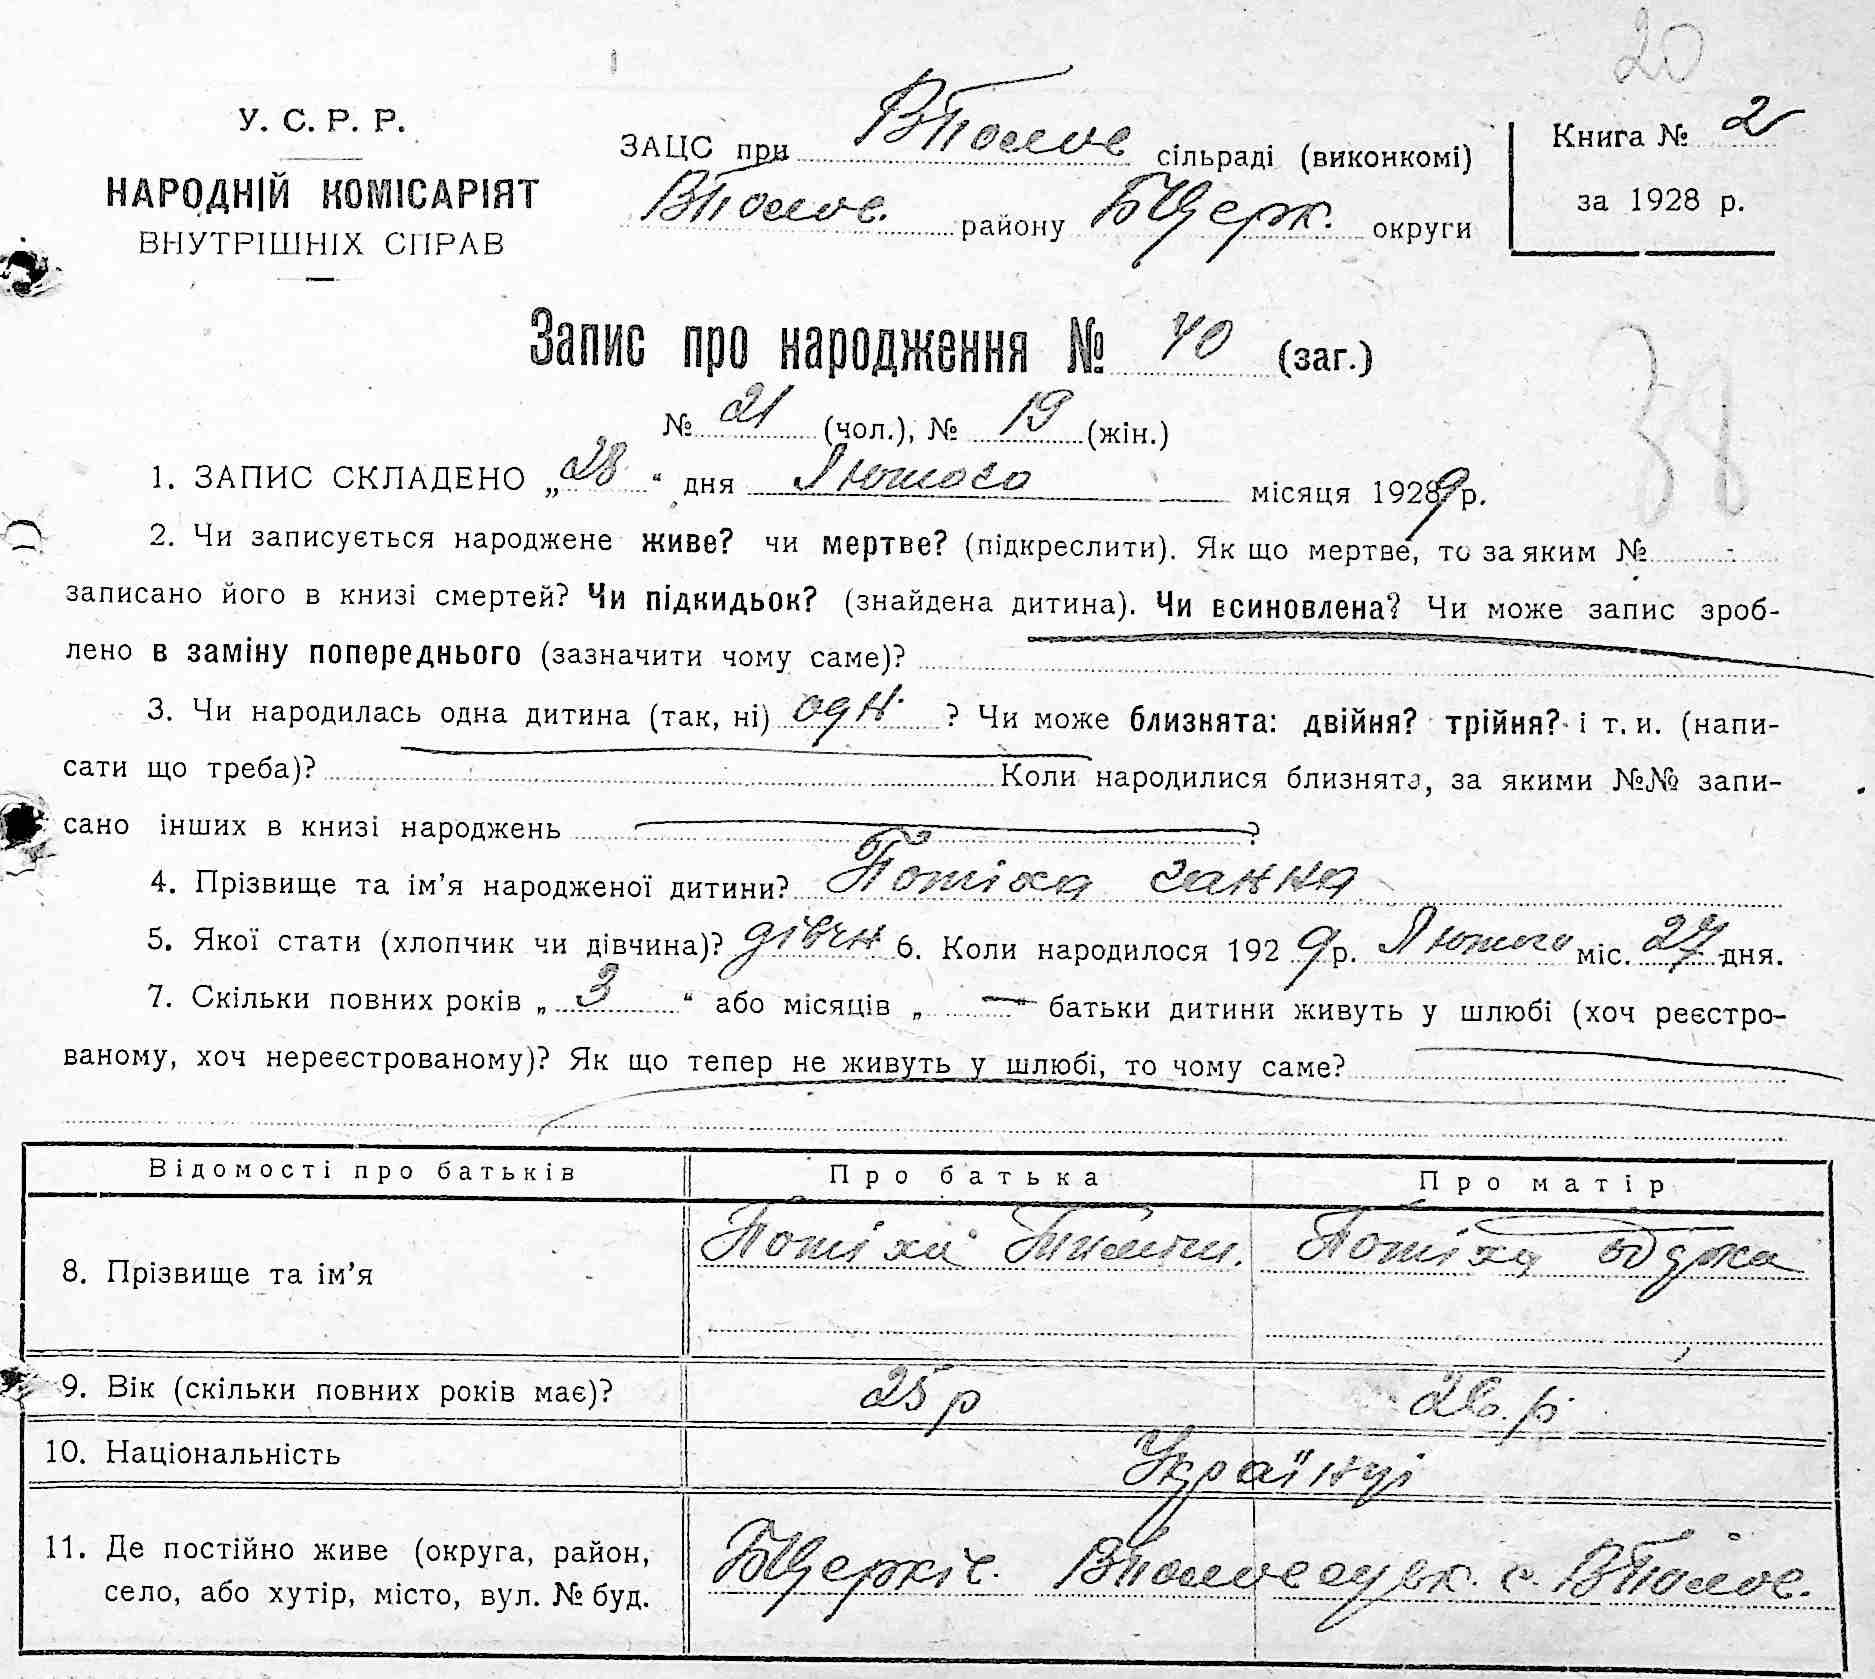 20
У. С. Р. Р.
НАРОДНІЙ КОМІСАРІЯТ
ВНУТРІШНІХ СПРАВ
ЗАЦС при ВПолов сільраді (виконкомі)
ВПолов. району БЦерк. округи
Книга № 2
за 1928 р.
Запис про народження № 40 (заг.)
№ 21 (чол.), № 19 (жін.)
38
1. ЗАПИС СКЛАДЕНО „28“ дня Лютого місяця 19289 р.
2. Чи записується народжене живе? чи мертве? (підкреслити). Як що мертве, то за яким №
записано його в книзі смертей? Чи підкидьок? (знайдена дитина). Чи всиновлена? Чи може запис зроб-
лено в заміну попереднього (зазначити чому саме)?
3. Чи народилась одна дитина (так, ні) одн. ? Чи може близнята: двійня? трійня? і т. и. (напи-
сати що треба)? Коли народилися близнята, за якими №№ запи-
сано інших в книзі народжень ?
4. Прізвище та ім’я народженої дитини? Потіха Ганна
5. Якої стати (хлопчик чи дівчина)? дівчн 6. Коли народилося 1929 р. Лютого міс. 27 дня.
7. Скільки повних років „ 3 “ або місяців „ — “ батьки дитини живуть у шлюбі (хоч реєстро-
ваному, хоч нереєстрованому)? Як що тепер не живуть у шлюбі, то чому саме?
Відомості про батьків Про батька Про матір
8. Прізвище та ім’я Потіха Тиміш. Потіха
9. Вік (скільки повних років має)? 25 р 26. р.
10. Національність Українці
11. Де постійно живе (округа, район,
село, або хутір, місто, вул. № буд.
БЦерків. с. ВПолов.